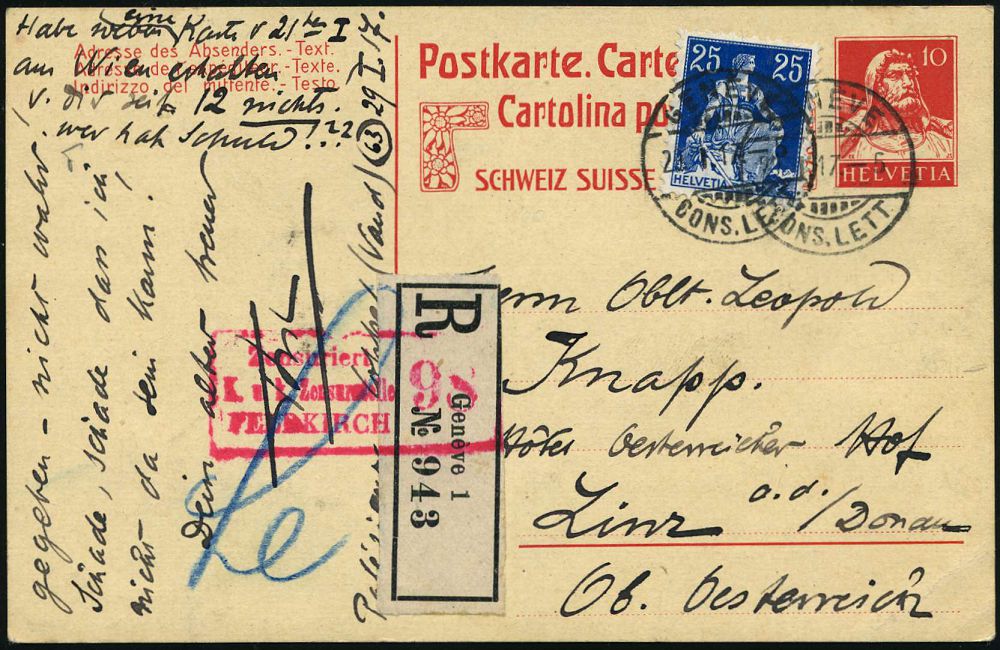 Habe eine Karte v 21ten I
Adresse des Absenders. - Text.
Adresse de l'expéditeur. - Texte.
Indirizzo del mittente. - Testo.
aus Wien erhalten
v. dir seit 12 nichts.
wer hat Schuld!??
63
29 I. 17.
gegeben - nicht wahr!
Schade, schade dass ich
nicht da sein kann!
Dein alter treuer
(Vaud)
Postkarte. Carte
Cartolina po
SCHWEIZ SUISSE
25 25
HELVETIA
10
HELVETIA
GENÈVE
CONS. LETT.
GENÈVE
17 - 5
CONS. LETT.
Zensuriert
K. u. k. Zensurstelle
FELDKIRCH
98
R
Genève 1
№ 943
Herrn Oblt. Leopold
Knapp.
Hôtel Oesterreicher Hof
Linz a.d./Donau
Ob. Oesterreich